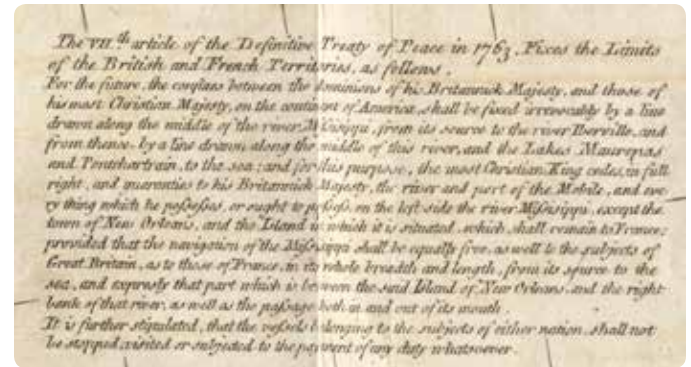 The VII.th article of the Definitive Treaty of Peace in 1763, Fixes the Limits
of the British and French Territories, as follows.
For the future, the confines between the dominions of his Britannick Majesty, and those of
his most Christian Majesty, on the continent of America, shall be fixed irrevocably by a line
drawn along the middle of the river Missisippi, from its source to the river Iberville, and
from thence, by a line drawn along the middle of this river, and the Lakes Maurepas
and Pontchartrain, to the sea; and for this purpose, the most Christian King cedes, in full
right, and guaranties to his Britannick Majesty, the river and port of the Mobile, and eve-
ry thing which he possesses, or ought to possess, on the left side the river Missisippi, except the
town of New Orleans, and the Island in which it is situated, which shall remain to France;
provided that the navigation of the Missisippi shall be equally free, as well to the subjects of
Great Britain, as to those of France, in its whole breadth and length, from its source to the
sea, and expresly that part which is between the said Island of New Orleans, and the right
bank of that river, as well as the passage both in and out of its mouth.
It is further stipulated, that the vessels belonging to the subjects of either nation, shall not
be stopped, visited or subjected to the payment of any duty whatsoever.